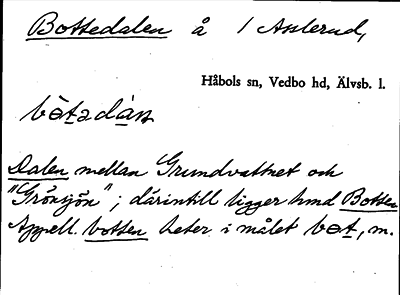 Bottedalen å 1 Asslerud,
Håbols sn, Vedbo hd, Älvsb. l.
bòtədàn
Dalen mellan Grundvattnet och
"Grönsjön"; därintill ligger hmd Botten
Appell. botten heter i målet bot, m.